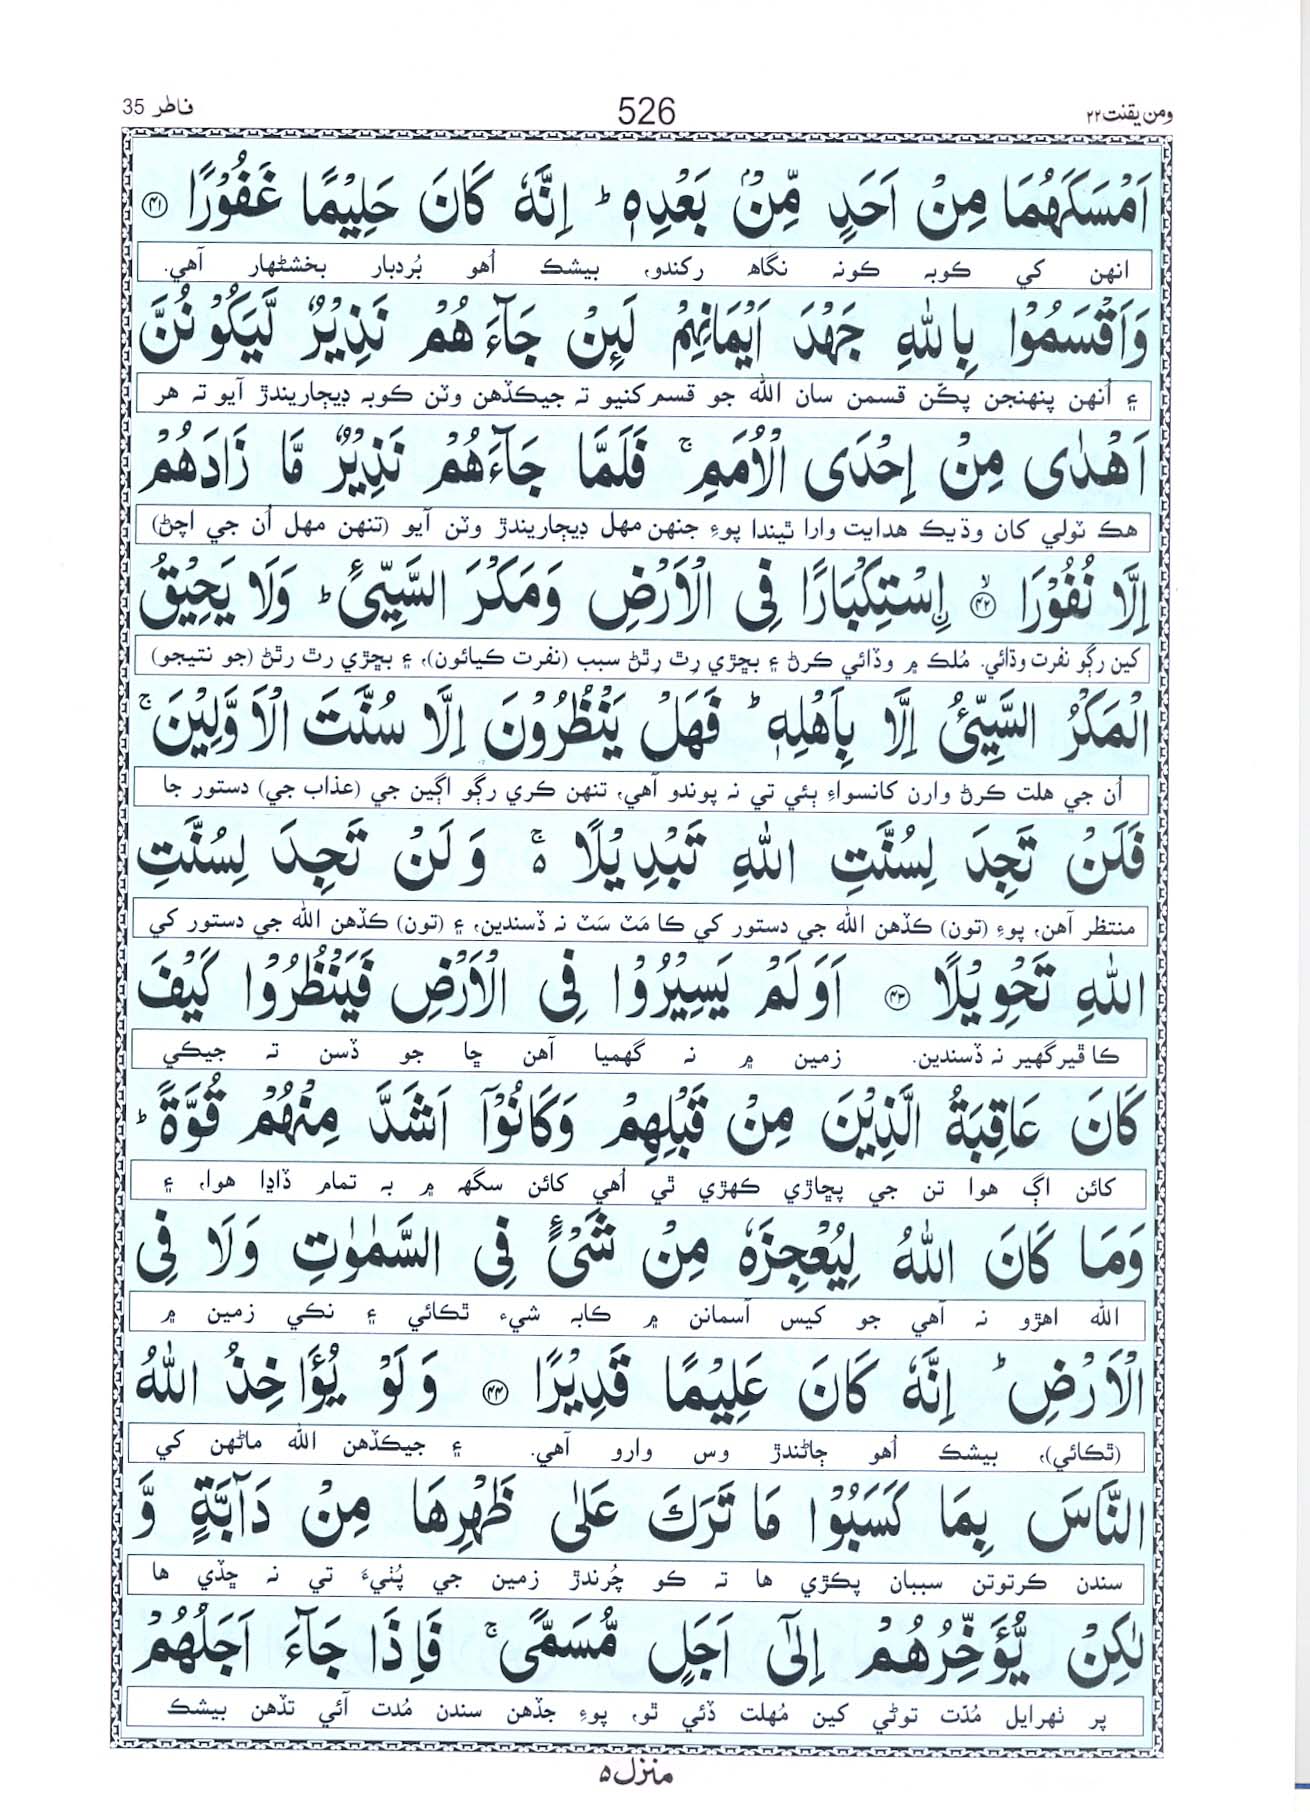 ومن يقنت ۲۲
526
فاطر 35
اَمْسَكَهُمَا مِنْ اَحَدٍ مِّنْۢ بَعْدِهٖ ؕ اِنَّهٗ كَانَ حَلِيْمًا غَفُوْرًا ﴿۴۱﴾
انهن کي ڪوبہ ڪونہ نگاھ رکندو، بيشڪ اُهو بُردبار بخشڻهار آهي.
وَاَقْسَمُوْا بِاللّٰهِ جَهْدَ اَيْمَانِهِمْ لَىِٕنْ جَآءَهُمْ نَذِيْرٌ لَّيَكُوْنُنَّ
۽ اُنهن پنهنجن پڪن قسمن سان الله جو قسم کنيو تہ جيڪڏهن وٽن ڪوبہ ڊيڄاريندڙ آيو تہ هر
اَهْدٰى مِنْ اِحْدَى الْاُمَمِ ۚ فَلَمَّا جَآءَهُمْ نَذِيْرٌ مَّا زَادَهُمْ
هڪ ٽولي کان وڌيڪ هدايت وارا ٿيندا پوءِ جنهن مهل ڊيڄاريندڙ وٽن آيو (تنهن مهل اُن جي اچڻ)
اِلَّا نُفُوْرَا ﴿۴۲﴾ۙ اِسْتِكْبَارًا فِى الْاَرْضِ وَمَكْرَ السَّيِّئِ ؕ وَلَا يَحِيْقُ
کين رڳو نفرت وڌائي. مُلڪ ۾ وڏائي ڪرڻ ۽ بڇڙي رِٿ رِٿڻ سبب (نفرت ڪيائون)، ۽ بڇڙي رٿ رٿڻ (جو نتيجو)
الْمَكْرُ السَّيِّئُ اِلَّا بِاَهْلِهٖ ؕ فَهَلْ يَنْظُرُوْنَ اِلَّا سُنَّتَ الْاَوَّلِيْنَ ۚ
اُن جي هلت ڪرڻ وارن کانسواءِ ٻئي تي نہ پوندو آهي، تنهن ڪري رڳو اڳين جي (عذاب جي) دستور جا
فَلَنْ تَجِدَ لِسُنَّتِ اللّٰهِ تَبْدِيْلًا ۚ۬ وَلَنْ تَجِدَ لِسُنَّتِ
منتظر آهن، پوءِ (تون) ڪڏهن الله جي دستور کي ڪا مَٽ سَٽ نہ ڏسندين، ۽ (تون) ڪڏهن الله جي دستور کي
اللّٰهِ تَحْوِيْلًا ﴿۴۳﴾ اَوَلَمْ يَسِيْرُوْا فِى الْاَرْضِ فَيَنْظُرُوْا كَيْفَ
ڪا ڦيرگهير نہ ڏسندين. زمين ۾ نہ گهميا آهن ڇا جو ڏسن تہ جيڪي
كَانَ عَاقِبَةُ الَّذِيْنَ مِنْ قَبْلِهِمْ وَكَانُوْۤا اَشَدَّ مِنْهُمْ قُوَّةً ؕ
کائن اڳ هوا تن جي پڇاڙي ڪهڙي ٿي اُهي کائن سگهہ ۾ بہ تمام ڏاڍا هوا، ۽
وَمَا كَانَ اللّٰهُ لِيُعْجِزَهٗ مِنْ شَىْءٍ فِى السَّمٰوٰتِ وَلَا فِى
الله اهڙو نہ آهي جو کيس آسمانن ۾ ڪابہ شيء ٿڪائي ۽ نڪي زمين ۾
الْاَرْضِ ؕ اِنَّهٗ كَانَ عَلِيْمًا قَدِيْرًا ﴿۴۴﴾ وَلَوْ يُؤَاخِذُ اللّٰهُ
(ٿڪائي)، بيشڪ اُهو ڄاڻندڙ وس وارو آهي. ۽ جيڪڏهن الله ماڻهن کي
النَّاسَ بِمَا كَسَبُوْا مَا تَرَكَ عَلٰى ظَهْرِهَا مِنْ دَآبَّةٍ وَّ
سندن ڪرتوتن سببان پڪڙي ها تہ ڪو چُرندڙ زمين جي پُٺيءَ تي نہ ڇڏي ها
لٰكِنْ يُّؤَخِّرُهُمْ اِلٰٓى اَجَلٍ مُّسَمًّى ۚ فَاِذَا جَآءَ اَجَلُهُمْ
پر ٺهرايل مُدّت توڻي کين مُهلت ڏئي ٿو، پوءِ جڏهن سندن مُدت آئي تڏهن بيشڪ
منزل ۵